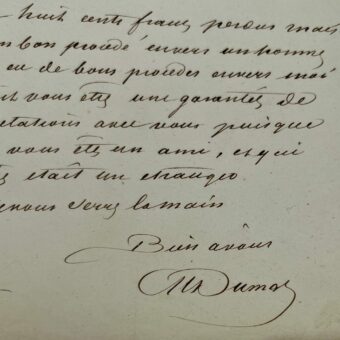 huit cents francs perdus mais
bon procédé envers un homme
eu de bons procédés envers moi
vous êtes une garantés de
avec vous puisque
vous êtes un ami, et qui
était un étranger
serre la main
Bien à vous
Dumas